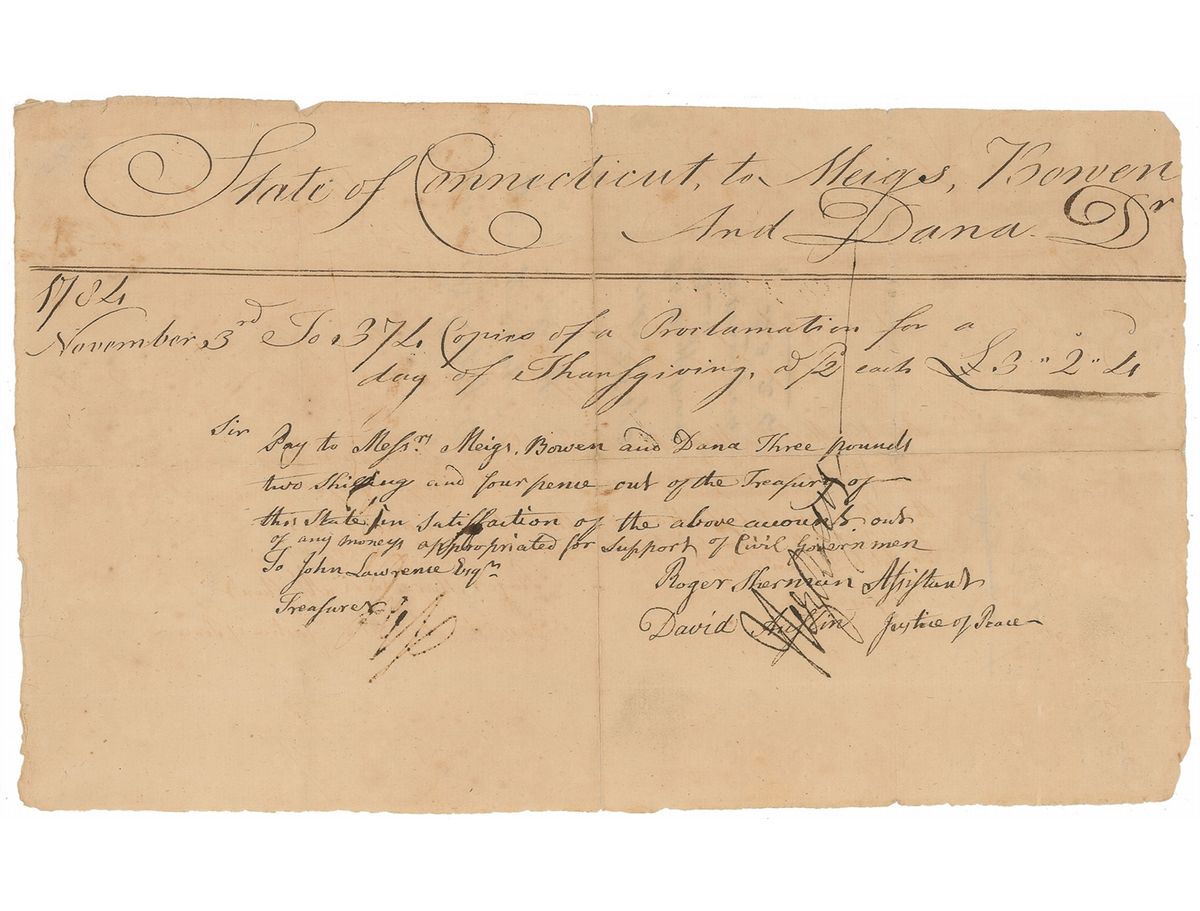 State of Connecticut, to Meigs, Bowen
And Dana. Dr
1784
November 3rd To 374 Copies of a Proclamation for a
day of Thanksgiving, @ /2 each £3"2"4
Sir Pay to Messrs. Meigs, Bowen and Dana Three pounds
two Shillings and four pence out of the Treasury of
this State, in Satisfaction of the above account out
of any moneys appropriated for Support of Civil Governmen
To John Lawrence Esqr.
Roger Sherman Assistant
Treasurer
David Austin Justice of Peace